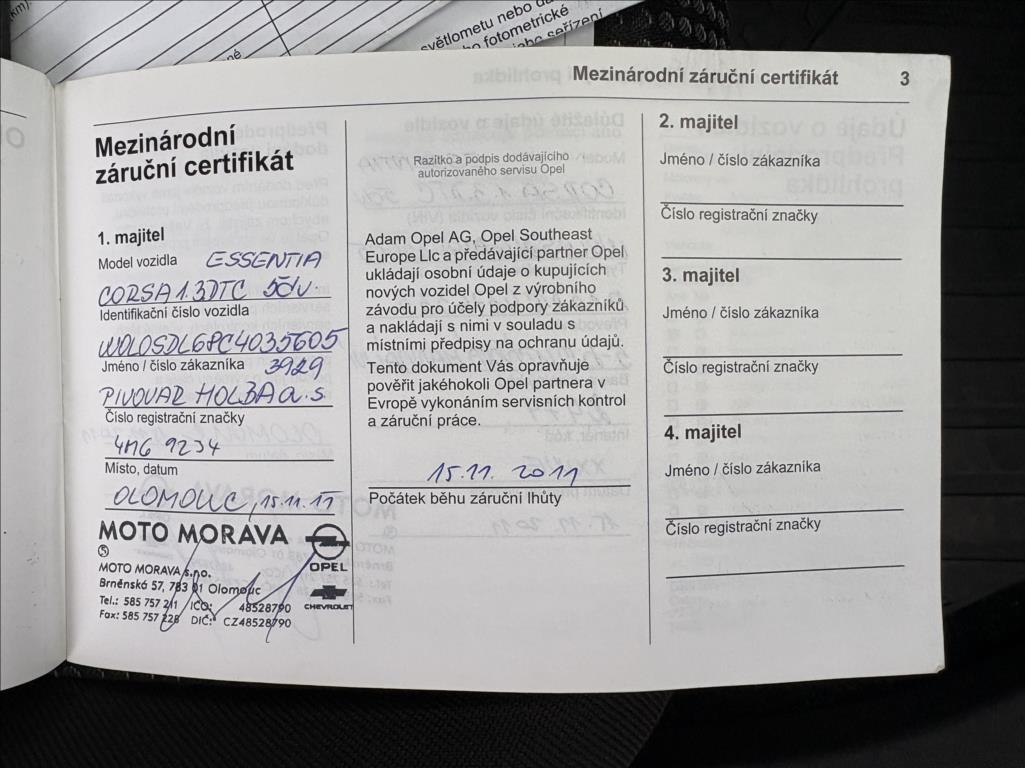 světlometu nebo
fotometrické
seřízení
Mezinárodní záruční certifikát 3
Mezinárodní
záruční certifikát
1. majitel
Model vozidla ESSENTIA
CORSA 1.3DTC 5dv.
Identifikační číslo vozidla
W0L0SDL6PC4035605
Jméno / číslo zákazníka 3929
PIVOVAR HOLBA a.s
Číslo registrační značky
4M6 9234
Místo, datum
OLOMOUC, 15.11.11
MOTO MORAVA
MOTO MORAVA s.r.o.
Brněnská 57, 783 01 Olomouc
Tel.: 585 757 211 IČO: 48528790
Fax: 585 757 228 DIČ: CZ48528790
OPEL
CHEVROLET
Razítko a podpis dodávajícího
autorizovaného servisu Opel
Adam Opel AG, Opel Southeast
Europe Llc a předávající partner Opel
ukládají osobní údaje o kupujících
nových vozidel Opel z výrobního
závodu pro účely podpory zákazníků
a nakládají s nimi v souladu s
místními předpisy na ochranu údajů.
Tento dokument Vás opravňuje
pověřit jakéhokoli Opel partnera v
Evropě vykonáním servisních kontrol
a záruční práce.
15.11. 2011
Počátek běhu záruční lhůty
2. majitel
Jméno / číslo zákazníka
Číslo registrační značky
3. majitel
Jméno / číslo zákazníka
Číslo registrační značky
4. majitel
Jméno / číslo zákazníka
Číslo registrační značky